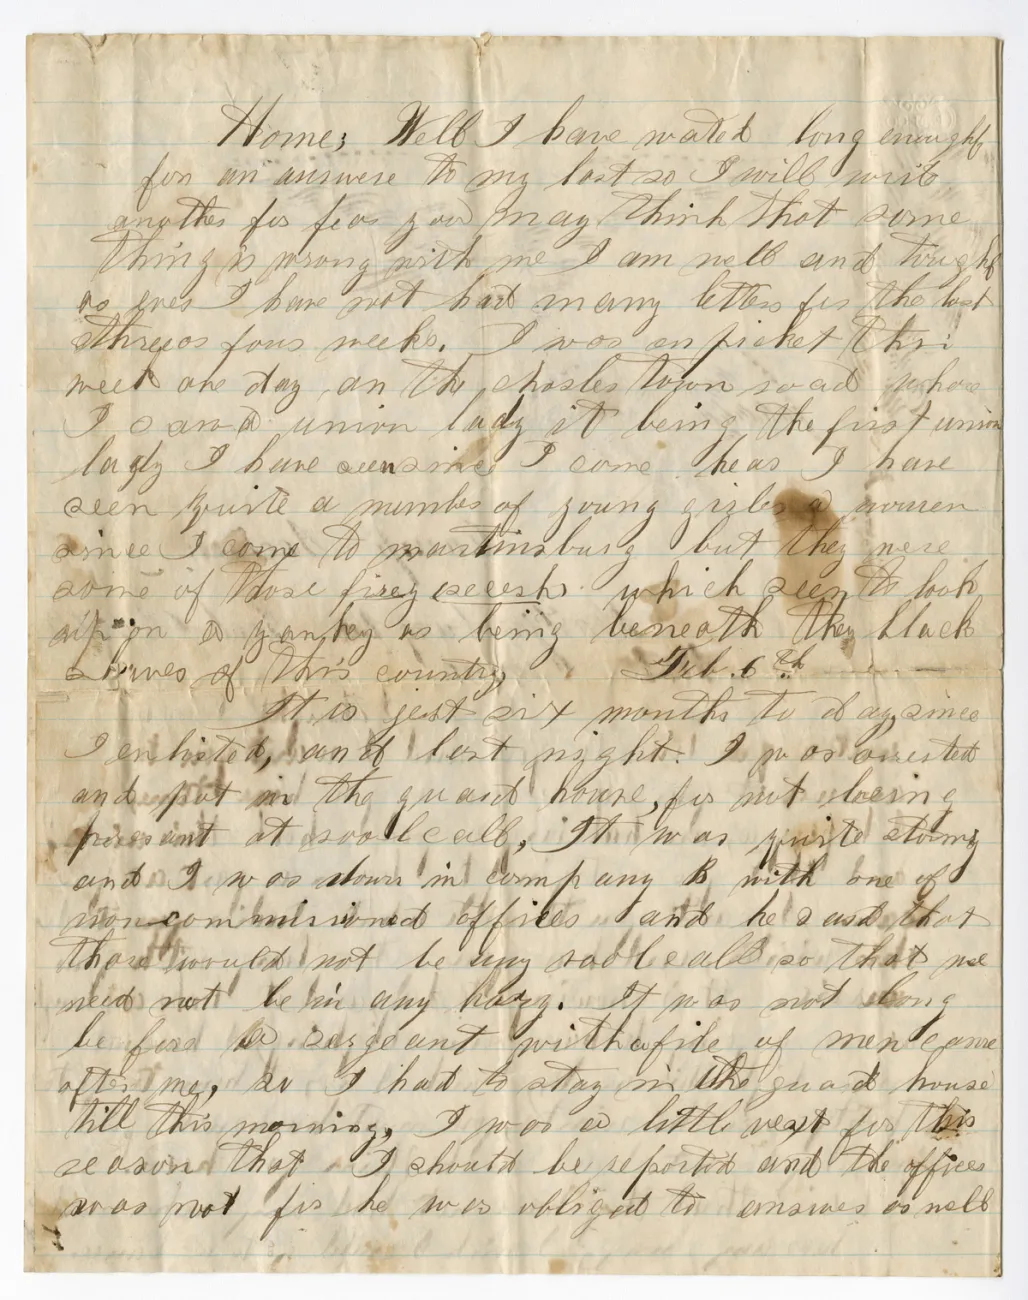 Home; Well I have wated long enough
for an answere to my last so I will write
another for fear you may think that some
thing is wrong with me I am well and tough
as ever I have not had many letters for the last
three or four weeks. I was on picket this
week one day on the charles town road whare
I saw a union lady it being the first union
lady I have seen since I come hear I have
seen quite a number of young girls & women
since I come to martinsburg but they were
some of those firey secesh which seem to look
up on a yankey as being beneath they black
slaves of this country, Feb. 6th
It is jest six months to day, since
I enlisted, and last night I was arrested
and put in the guard house, for not being
pressant at roolcall, It was quite stormy
and I was down in company B with one of
non-commissioned officers and he said that
thare would not be any roolcall so that we
need not be in any hurry. It was not long
before a sergeant with a file of men came
after me, so I had to stay in the guard house
till this morning, I was a little vext for this
reason that I should be reported and the officer
was not for he was obliged to answer as well